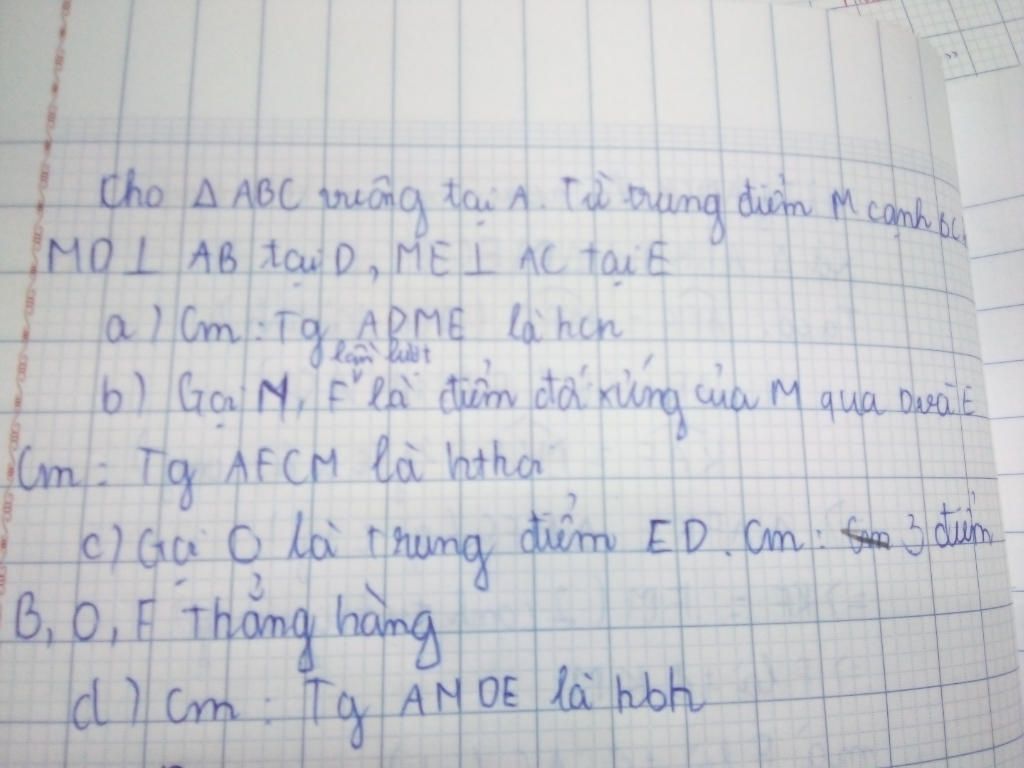 Cho Δ ABC vuông tại A. Từ trung điểm M cạnh BC,
MD ⊥ AB tại D, ME ⊥ AC tại E
a) Cm : Tg ADME là hcn
lần lượt
b) Gọi N, F là điểm đối xứng của M qua D và E
Cm : Tg AFCM là hthoi
c) Gọi O là trung điểm ED. Cm : 3 điểm
B, O, F thẳng hàng
d) Cm : Tg ANDE là hbh